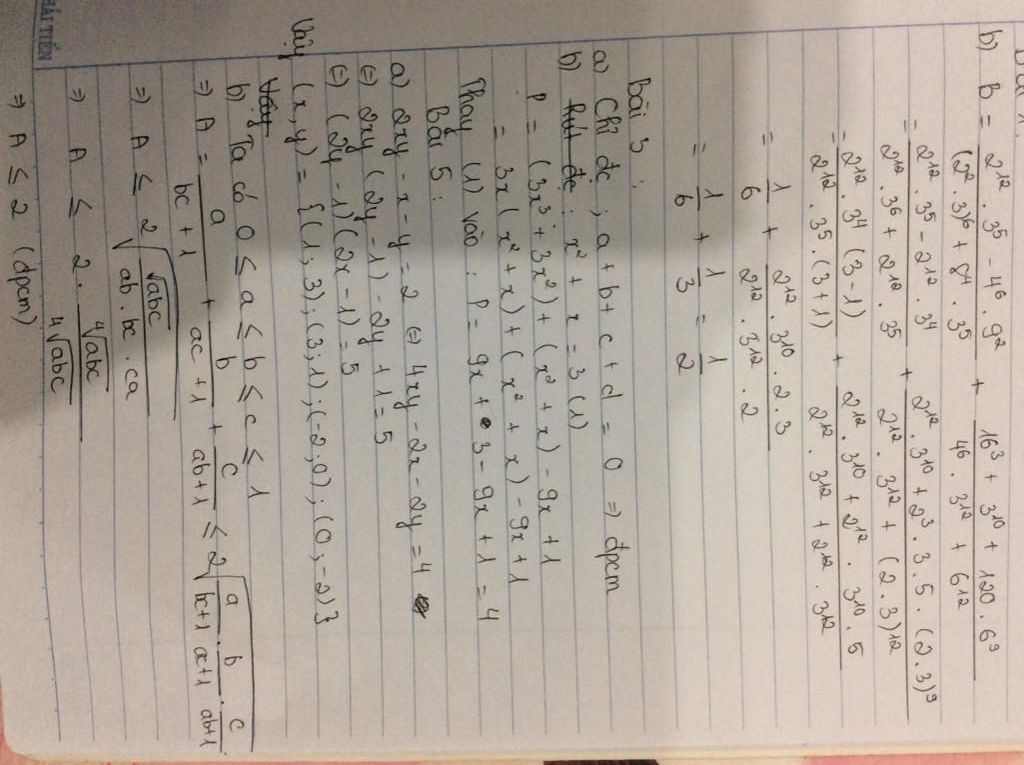 b) B = \frac{2^{12} . 3^5 - 4^6 . 9^2}{(2^2 . 3)^6 + 8^4 . 3^5} + \frac{16^3 + 3^{10} + 120 . 6^9}{4^6 . 3^{12} + 6^{12}}
= \frac{2^{12} . 3^5 - 2^{12} . 3^4}{2^{12} . 3^6 + 2^{12} . 3^5} + \frac{2^{12} . 3^{10} + 2^3 . 3 . 5 . (2 . 3)^9}{2^{12} . 3^{12} + (2 . 3)^{12}}
= \frac{2^{12} . 3^4 (3 - 1)}{2^{12} . 3^5 . (3 + 1)} + \frac{2^{12} . 3^{10} + 2^{12} . 3^{10} . 5}{2^{12} . 3^{12} + 2^{12} . 3^{12}}
= \frac{1}{6} + \frac{2^{12} . 3^{10} . 2 . 3}{2^{12} . 3^{12} . 2}
= \frac{1}{6} + \frac{1}{3} = \frac{1}{2}
Bài 3 :
a) Chỉ đc ; a + b + c + d = 0 ⇒ đpcm
b) : x² + x = 3 (1)
P = (3x³ + 3x²) + (x² + x) - 9x + 1
= 3x (x² + x) + (x² + x) - 9x + 1
Thay (1) vào : P = 9x + 3 - 9x + 1 = 4
Bài 5 :
a) 2xy - x - y = 2 ⇔ 4xy - 2x - 2y = 4
⇔ 2x (2y - 1) - 2y + 1 = 5
⇔ (2y - 1) (2x - 1) = 5
Vậy (x, y) = {(1, 3) ; (3, 1) ; (-2, 0) ; (0, -2)}
b) Ta có 0 ≤ a ≤ b ≤ c ≤ 1
⇒ A = \frac{a}{bc + 1} + \frac{b}{ac + 1} + \frac{c}{ab + 1} ≤ 2\sqrt{\frac{a}{bc+1} . \frac{b}{ac+1} . \frac{c}{ab+1}}
⇒ A ≤ 2\sqrt{\frac{\sqrt{abc}}{ab . bc . ca}}
⇒ A ≤ 2 . \frac{\sqrt[4]{abc}}{\sqrt[4]{abc}}
⇒ A ≤ 2 (đpcm)